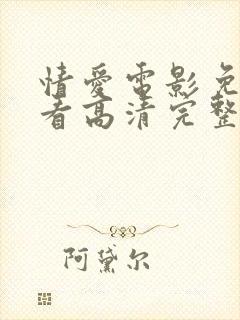 情愛電影免
看高清完整
阿黛尔